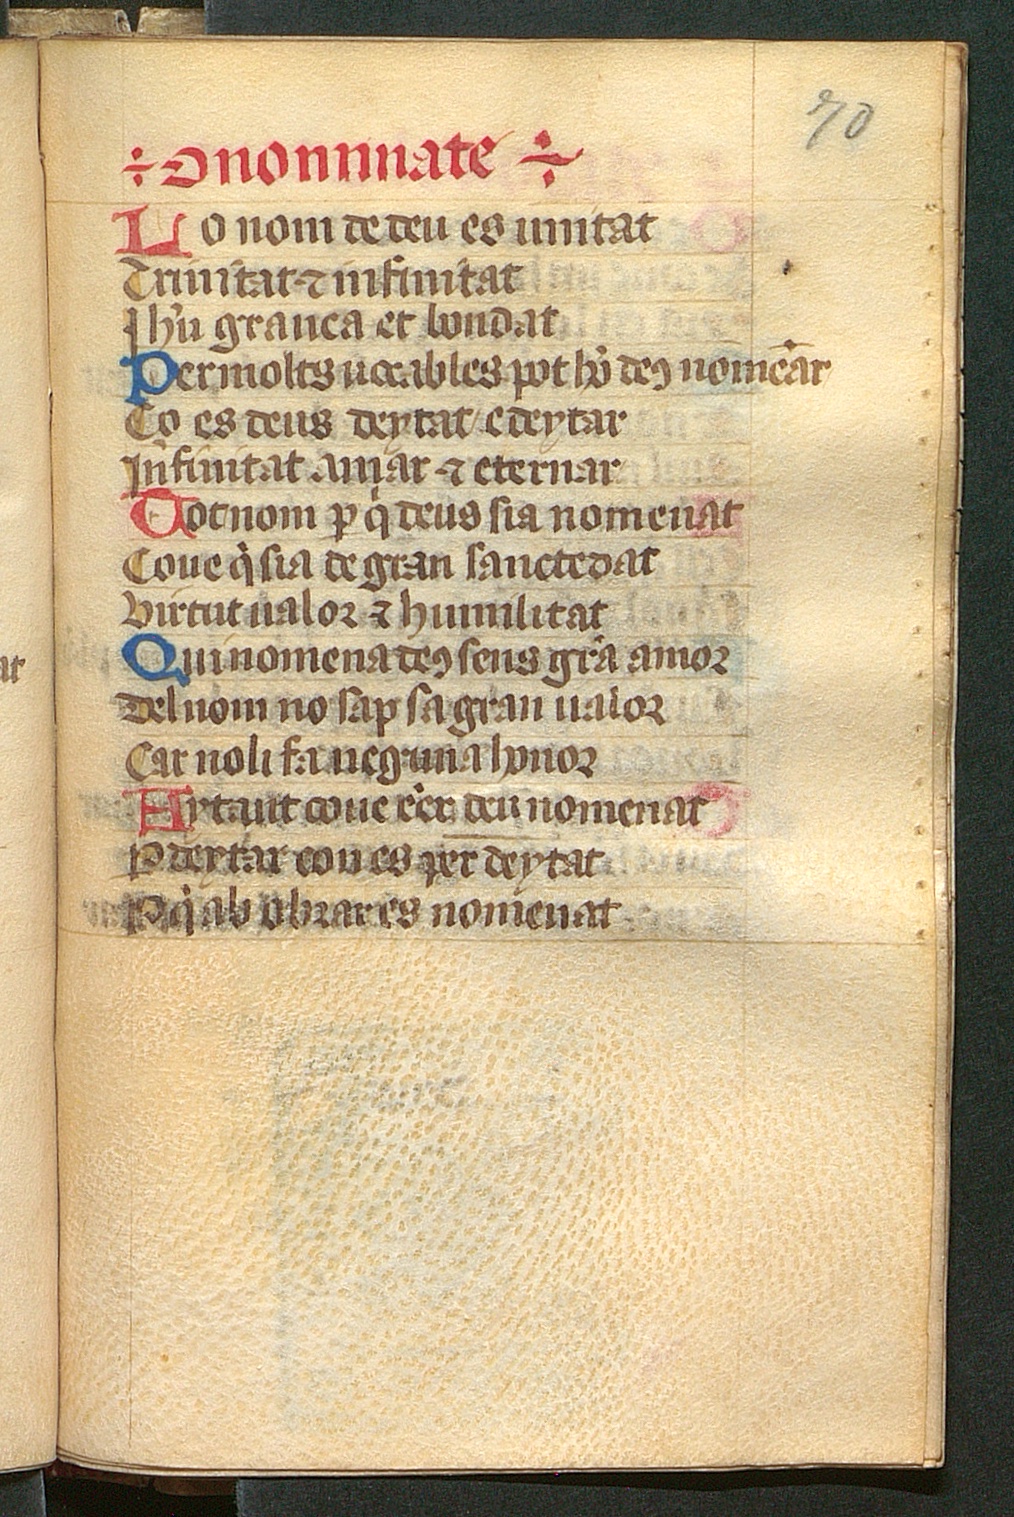 70
÷ D nominate ÷
Lo nom de deu es unitat
Trinitat ⁊ infinitat
Jhũ granea et bondat
Per molts uocables pot hõ deꝯ nomẽar
Co es deus deytat e deytar
Jnfinitat amar ⁊ eternar
Tot nom ꝑ q̇ deus sia nomenat
Coue q̇ sia de gran sanctedat
Virtut ualor ⁊ humilitat
Qui nomena deꝯ sens grã amor
Del nom no sap sa gran ualor
Car no li fa neguna honor
Aytant coue eẽr deu nomenat
ꝑ deytar con es per deytat
ꝑ q̇ ab obrar es nomenat